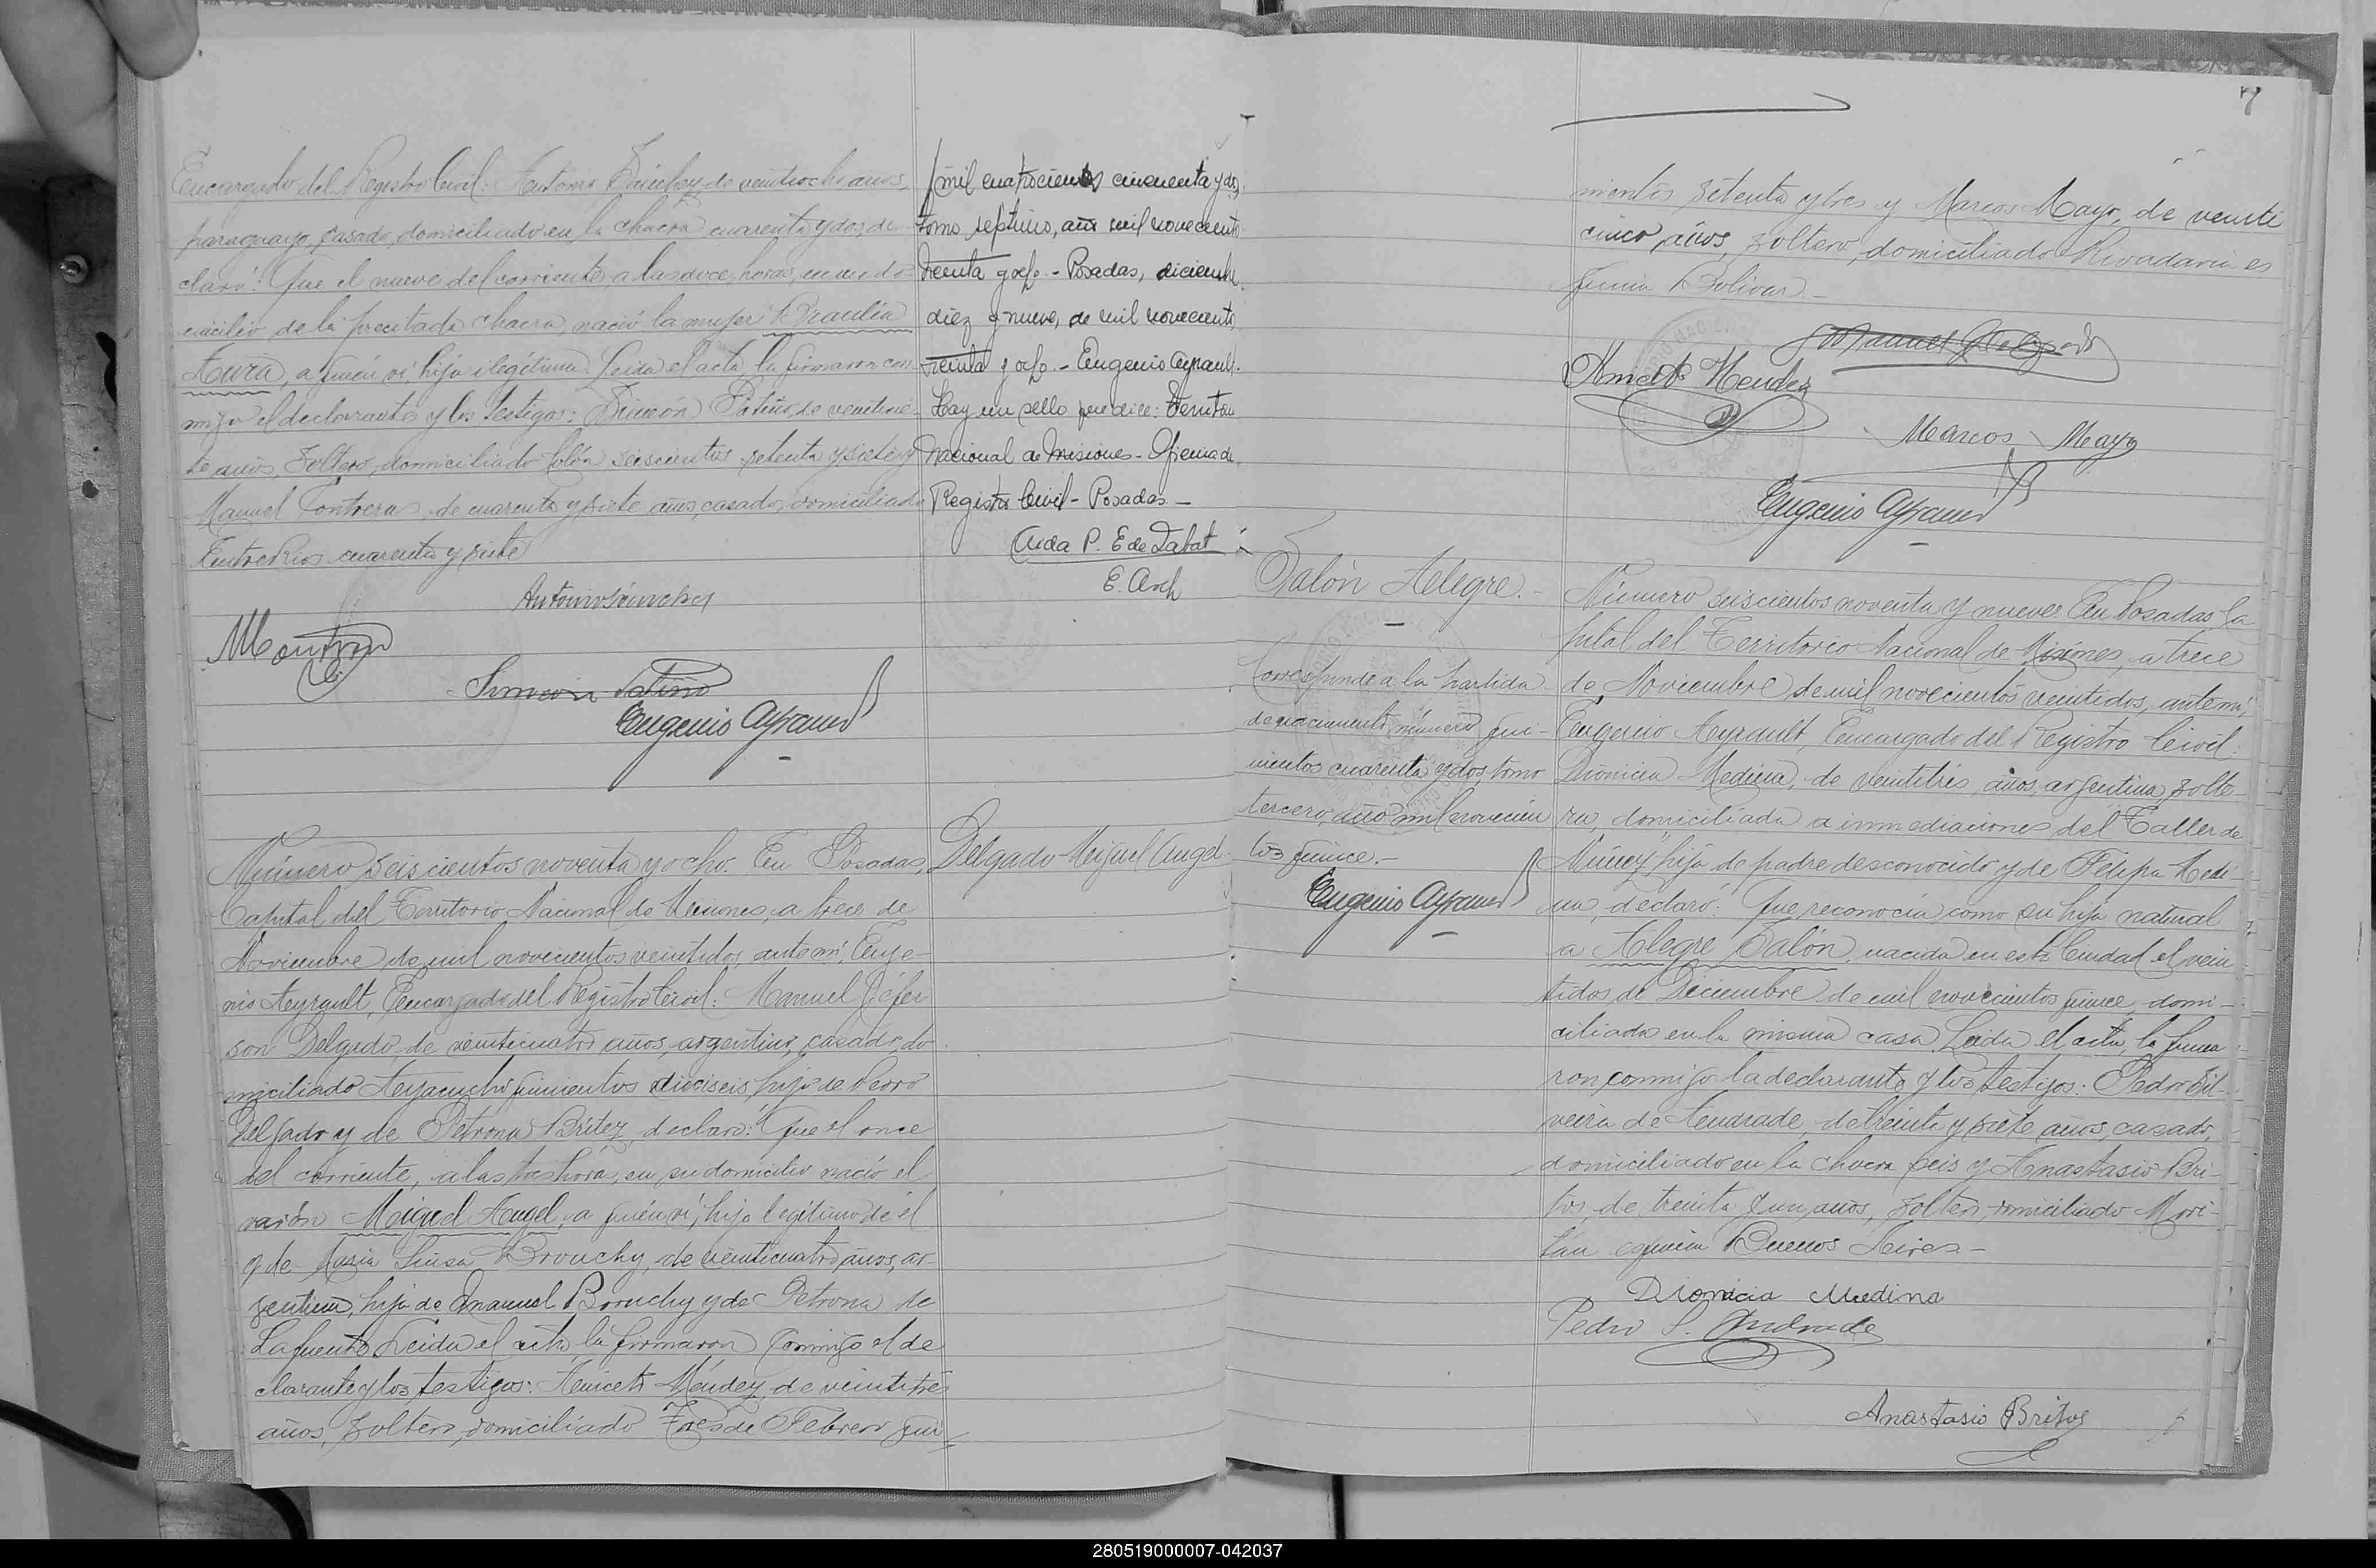 Encargado del Registro Civil: Antonio Sánchez, de veintiocho años,
paraguayo, casado, domiciliado en la chacra cuarenta y dos, de-
claró: Que el nueve del corriente, a las doce horas, en su do-
micilio de la precitada chacra, nació la mujer Braulia
Aura, a quien ví, hija ilegítima. Leida el acta, la firmaron con-
migo el declarante y los testigos: Simeón Patiño, de veintisie-
te años, soltero, domiciliado Colón seiscientos setenta y siete y
Manuel Contreras, de cuarenta y siete años, casado, domiciliado
Entre Rios cuarenta y siete
Antonio Sánchez
Simeón Patiño
Eugenio Ayrault
mil cuatrocientos cincuenta y dos,
tomo séptimo, año mil novecientos
treinta y ocho. - Posadas, diciembre
diez y nueve, de mil novecientos
treinta y ocho. - Eugenio Ayrault.
Hay un sello que dice: Territorio
Nacional de Misiones - Oficina de
Registro Civil - Posadas -
Aida P. E de Labat
E. Arch
Número seiscientos noventa y ocho. En Posadas,
Capital del Territorio Nacional de Misiones, a trece de
Noviembre de mil novecientos veintidos, ante mí, Euge-
nio Ayrault, Encargado del Registro Civil: Manuel Jéfer
son Delgado, de veinticuatro años, argentino, casado, do
miciliado Ayacucho quinientos dieciseis, hijo de Pedro
Delgado y de Petrona Britez, declaró: Que el once
del corriente, a las tres horas, en su domicilio nació el
varón Miguel Angel, a quién ví, hijo legítimo de él
y de María Luisa Brouchy, de veinticuatro años, ar-
gentina, hija de Manuel Brouchy y de Petrona de
Lafuente. Leida el acta la firmaron conmigo el de
clarante y los testigos: Aniceto Méndez, de veintitrés
años, soltero, domiciliado Tres de Febrero qui
Delgado Miguel Angel.
7
nientos setenta y tres y Marcos Mayo, de veinti
cinco años, soltero, domiciliado Rivadavia es
quina Bolivar. -
Manuel J Delgado
Aniceto Mendez
Marcos Mayo
Eugenio Ayrault
Salón Alegre. -
Corresponde a la partida
de nacimiento número qui-
nientos cuarenta y dos, tomo
tercero, año mil novecien
tos quince. -
Eugenio Ayrault
Número seiscientos noventa y nueve. En Posadas, Ca-
pital del Territorio Nacional de Misiones, a trece
de Noviembre de mil novecientos veintidos, ante mí,
Eugenio Ayrault, Encargado del Registro Civil:
Dionicia Medina, de veintitrés años, argentina, solte-
ra, domiciliada a inmediaciones del Taller de
Núñez, hija de padre desconocido y de Felipa Medi
na, declaró: Que reconocía como su hija natural
a Alegre Salón, nacida en esta Ciudad el vein
tidos de Diciembre de mil novecientos quince, domi-
ciliada en la misma casa. Leida el acta, la firma
ron conmigo la declarante y los testigos: Pedro Sil-
veira de Andrade, de treinta y siete años, casado,
domiciliado en la chacra seis y Anastasio Bri-
tos, de treinta y un años, soltero, domiciliado Mori-
tán esquina Buenos Aires. -
Dionicia Medina
Pedro S. Andrade
Anastasio Britos
280519000007-042037